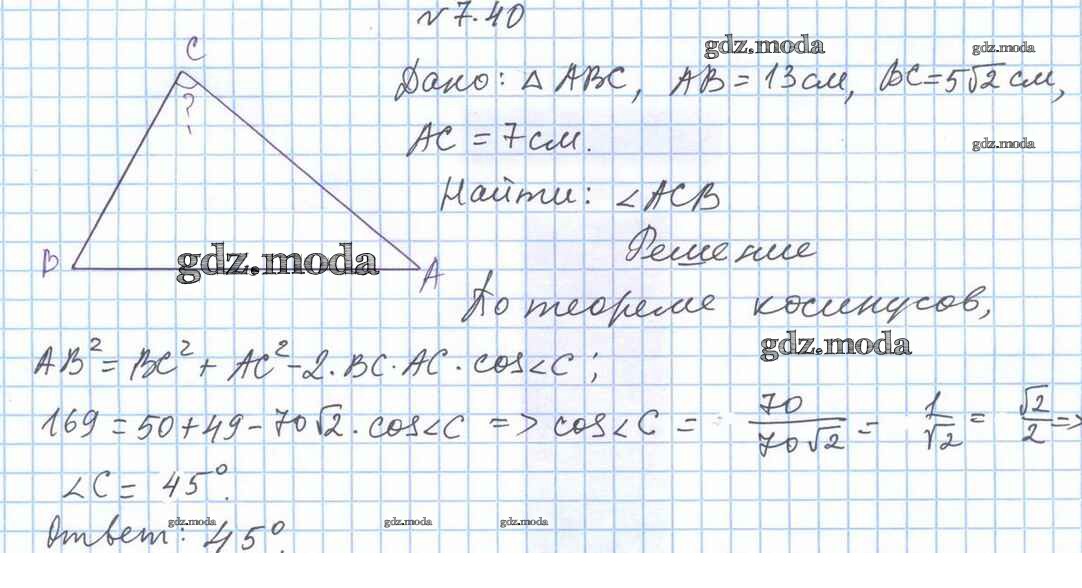 № 7.40
C
gdz.moda
gdz.moda
Дано: △ ABC, AB = 13 см, BC = 5√2 см,
?
AC = 7 см.
gdz.moda
Найти: ∠ACB
Решение
B gdz.moda A
По теореме косинусов,
gdz.moda
AB² = BC² + AC² - 2 · BC · AC · cos∠C ;
169 = 50 + 49 - 70√2 · cos∠C => cos∠C = - 70/70√2 = 1/√2 = √2/2 =>
∠C = 45°.
gdz.moda gdz.moda gdz.moda
Ответ: 45°.